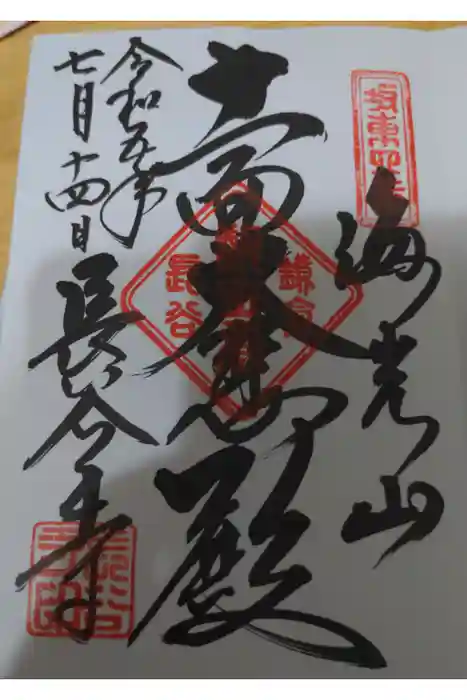 坂東四番
海光山
十一面大悲殿
鎌倉
長谷
令和五年
七月十四日
長谷寺